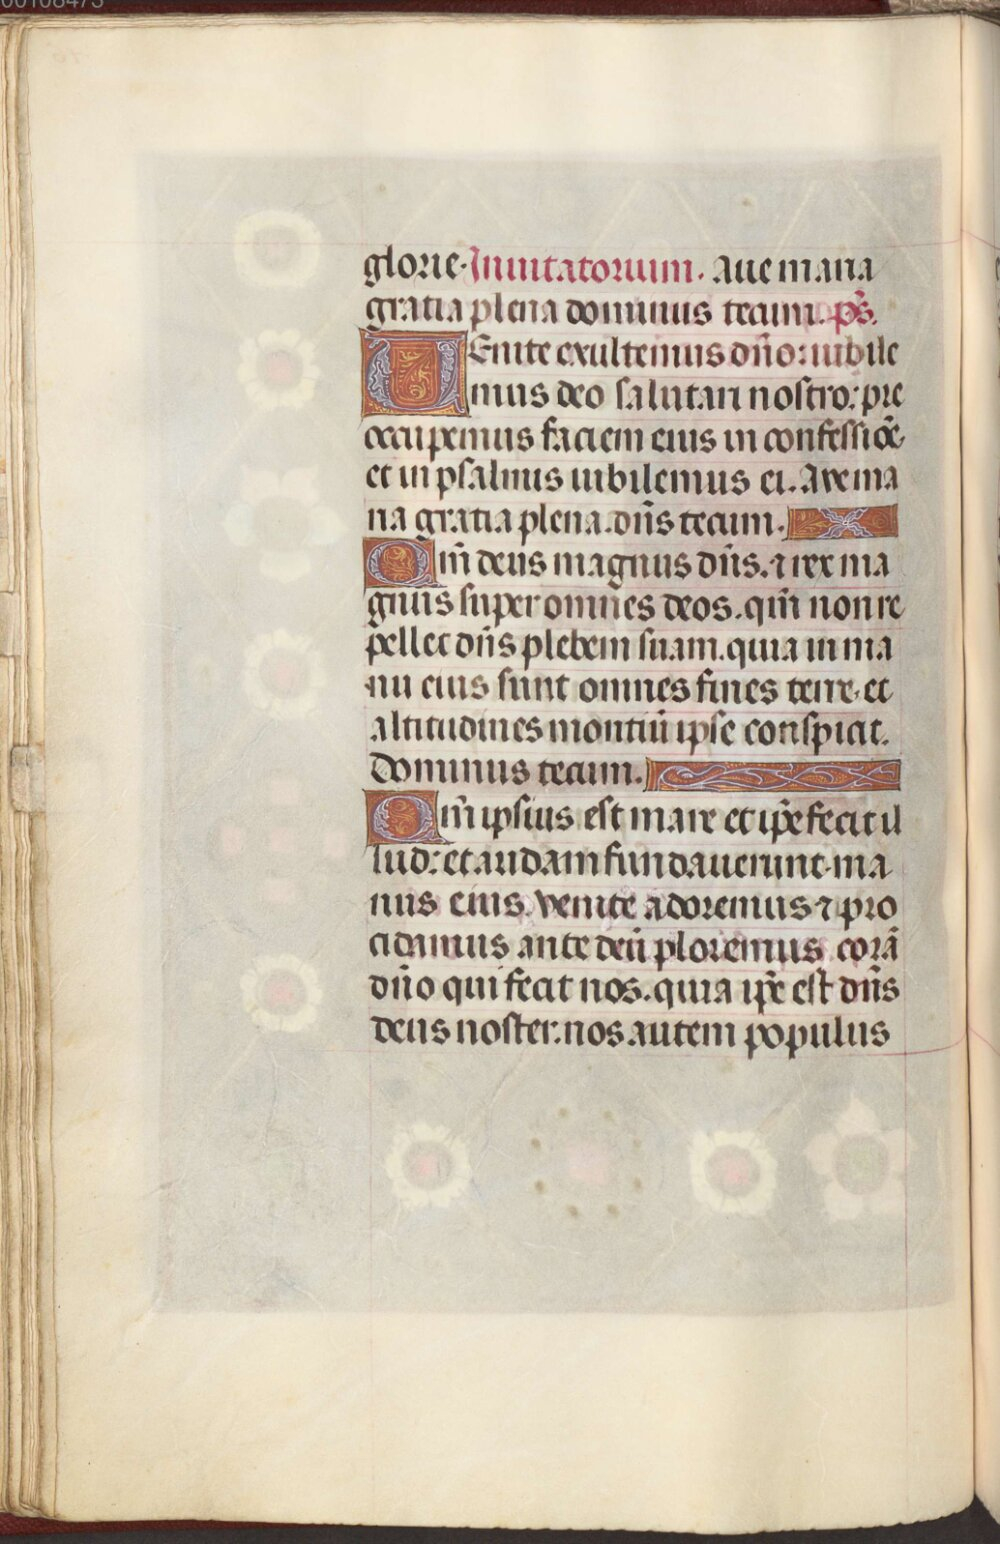 glorie. Inuitatorium. Aue maria
gratia plena dominus tecum. ps̄.
VEnite exultemus dño: iubile
mus deo salutari nostro: pre
occupemus faciem eius in confessiōe
et in psalmis iubilemus ei. Aue ma
ria gratia plena. dñs tecum.
Qm̄ deus magnus dñs. ⁊ rex ma
gnus super omnes deos. qm̄ non re
pellet dñs plebem suam. quia in ma
nu eius sunt omnes fines terre. et
altitudines montiū ipse conspicit.
Dominus tecum.
Qm̄ ipsius est mare et ip̄e fecit il
lud: et aridam fundauerunt ma
nus eius. venite adoremus ⁊ pro
cidamus ante deū ploremus corā
dño qui fecit nos. quia ip̄e est dñs
deus noster. nos autem populus